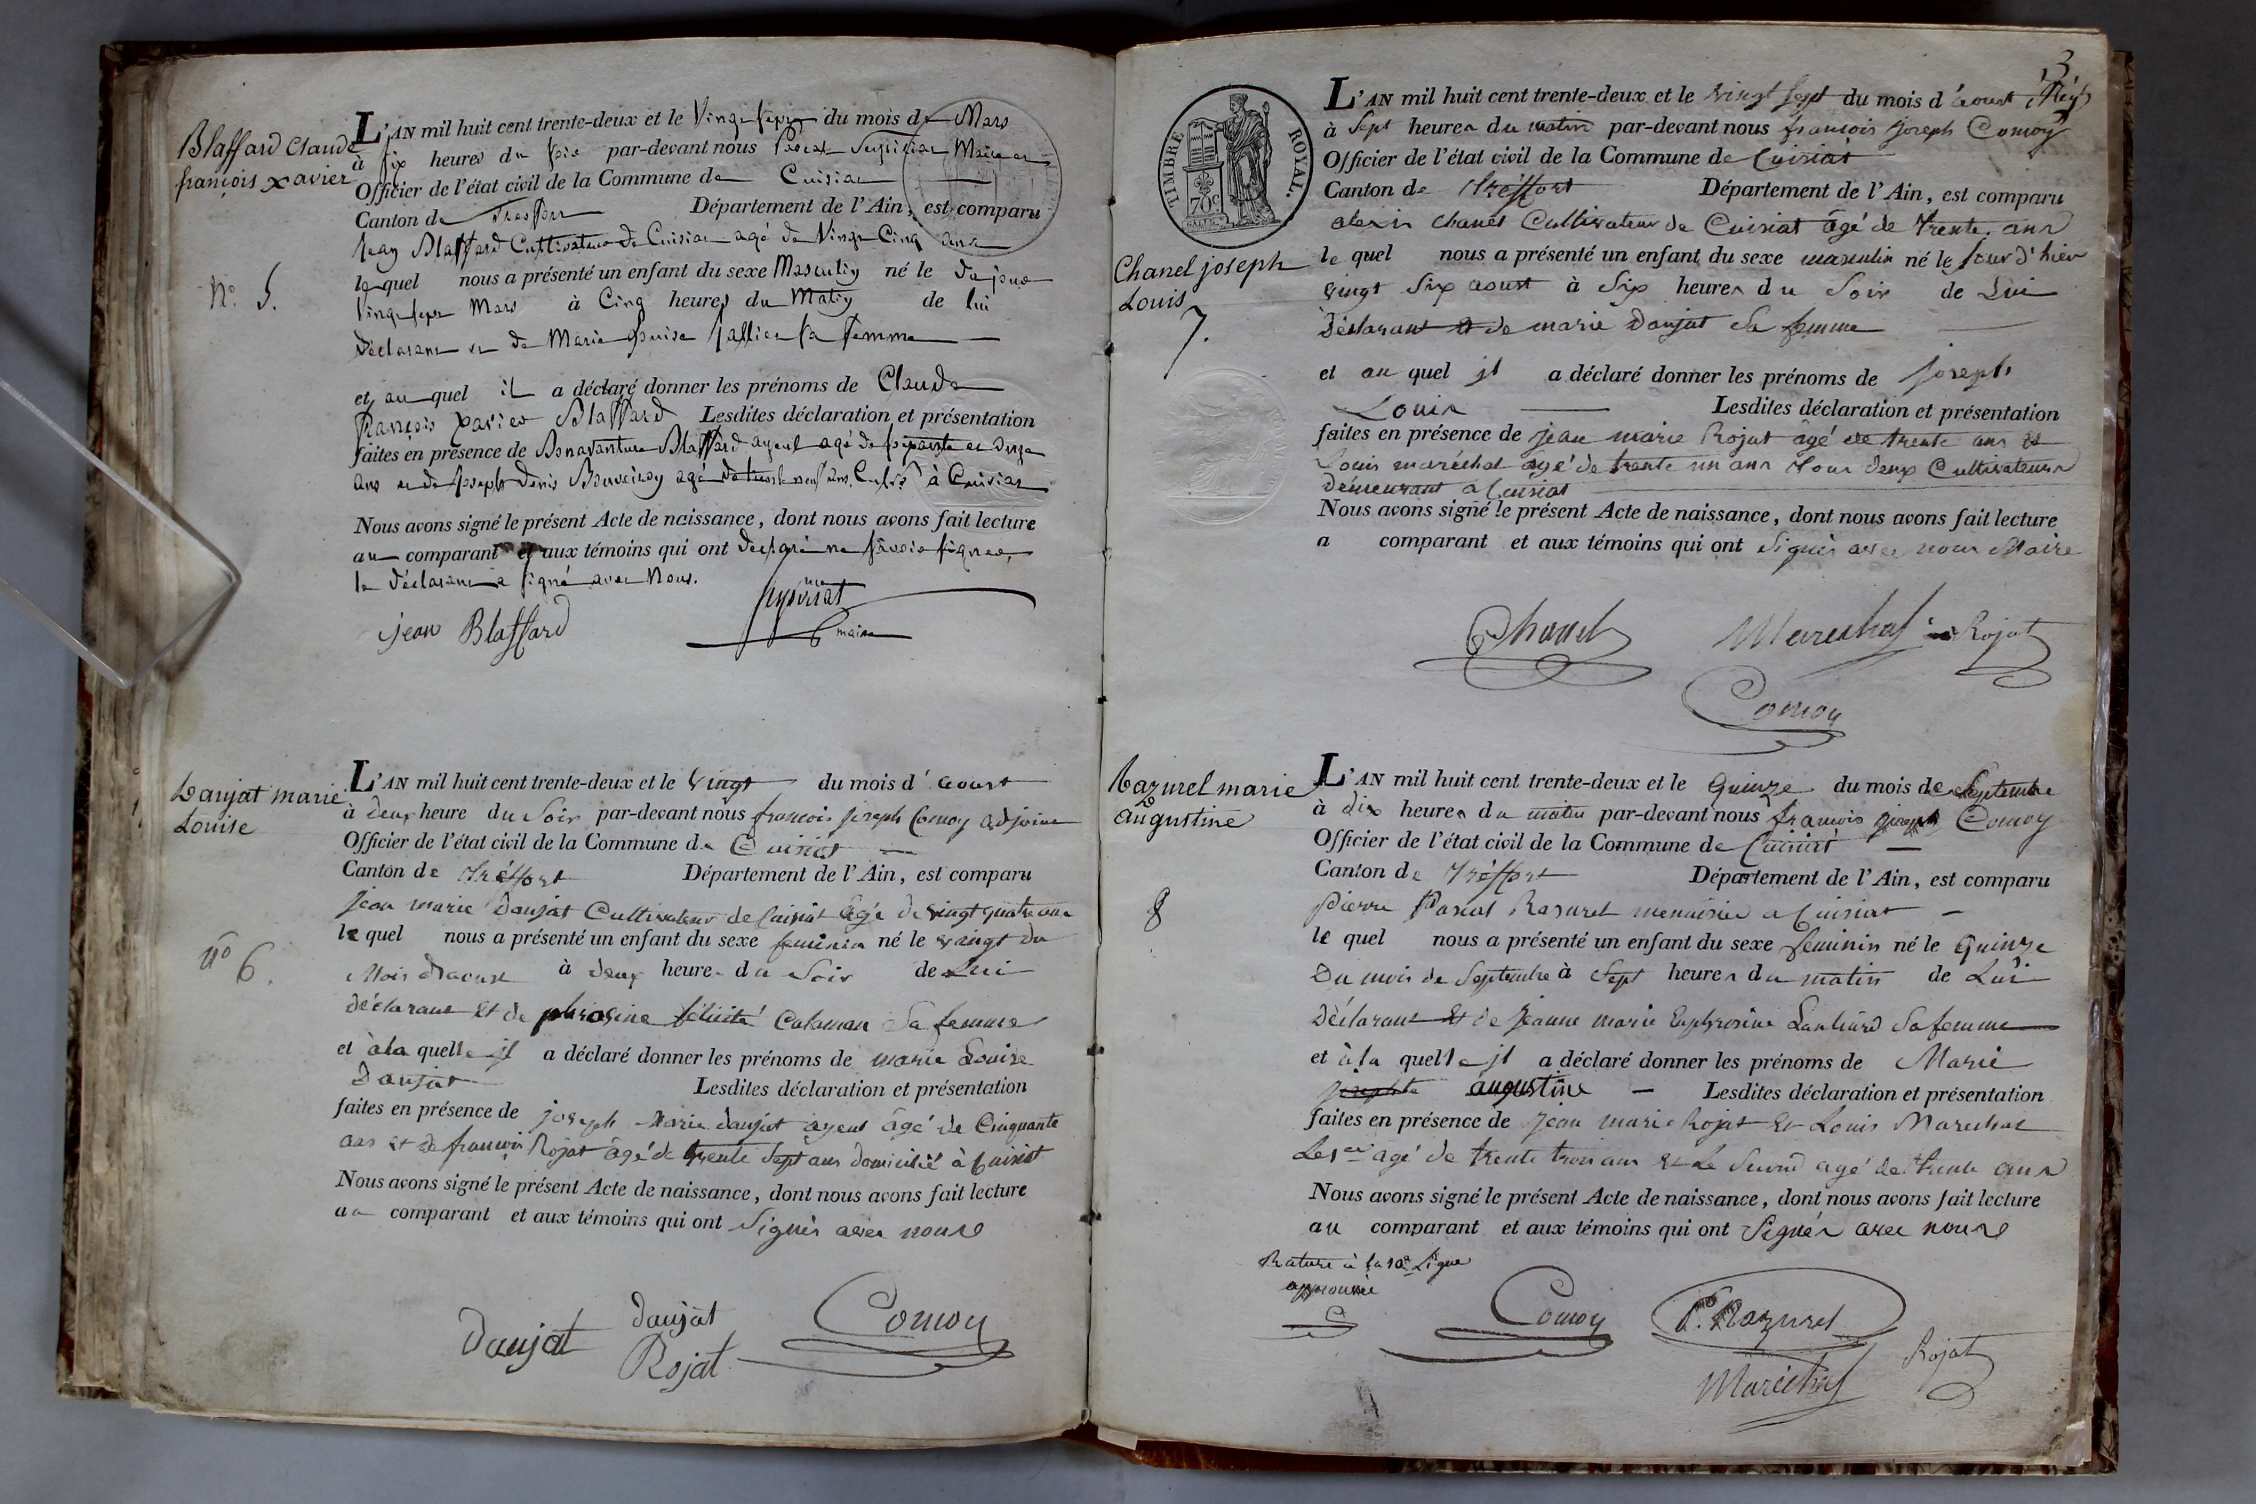 Blaffard Claude
françois xavier
N.° 5.
L'AN mil huit cent trente-deux et le Vingt sept du mois de Mars
à six heures du soir par-devant nous Maire et
Officier de l'état civil de la Commune de Cuisiat
Canton de Treffort Département de l'Ain, est comparu
Jean Blaffard Cultivateur de Cuisiat agé de Vingt Cinq ans
lequel nous a présenté un enfant du sexe Masculin né le du jour
Vingt sept Mars à Cinq heures du Matin de lui
Déclarant et de Marie Louise sa femme
et au quel il a déclaré donner les prénoms de Claude
François Xavier Blaffard Lesdites déclaration et présentation
faites en présence de Bonaventure Blaffard ayeul agé de soixante et onze
ans et de Joseph Denis agé de trente neuf ans, à Cuisiat
Nous avons signé le présent Acte de naissance, dont nous avons fait lecture
au comparant et aux témoins qui ont ne savoir signer,
le Déclarant a signé avec Nous.
jean Blaffard
maire
Daujat marie
Louise
n° 6.
L'AN mil huit cent trente-deux et le vingt du mois d'aoust
à deux heure du Soir par-devant nous françois joseph Comoy adjoint
Officier de l'état civil de la Commune de Cuisiat
Canton de Tréffort Département de l'Ain, est comparu
Jean marie Daujat Cultivateur de Cuisiat âgé de vingt quatre ans
le quel nous a présenté un enfant du sexe feminin né le vingt du
Mois d'aoust à deux heures du Soir de Lui
déclarant et de phrosine félicité Sa femme
et à la quelle il a déclaré donner les prénoms de marie Louise
Daujat Lesdites déclaration et présentation
faites en présence de joseph Marie daujat ayeul âgé de Cinquante
ans et de françois Rojat âgé de trente Sept ans domicilié à Cuisiat
Nous avons signé le présent Acte de naissance, dont nous avons fait lecture
au comparant et aux témoins qui ont Signés avec nous
Daujat daujat Comoy
Rojat
3
TIMBRE ROYAL.
70c
Chanel joseph
Louis
7.
L'AN mil huit cent trente-deux et le vingt sept du mois d'aoust
à Sept heures du matin par-devant nous françois joseph Comoy
Officier de l'état civil de la Commune de Cuisiat
Canton de Tréffort Département de l'Ain, est comparu
alexis chanel Cultivateur de Cuisiat âgé de trente ans
le quel nous a présenté un enfant du sexe masculin né le jour d'hier
vingt Six aoust à Six heures du Soir de Lui
Déclarant et de marie Daujat Sa femme
et au quel il a déclaré donner les prénoms de joseph
Louis Lesdites déclaration et présentation
faites en présence de jean marie Rojat âgé de trente ans et
Louis maréchal âgé de trente un ans tous deux Cultivateurs
demeurant à Cuisiat
Nous avons signé le présent Acte de naissance, dont nous avons fait lecture
a comparant et aux témoins qui ont Signés avec nous Maire
Chanel Marechal Rojat
Comoy
Razurel marie
augustine
8
L'AN mil huit cent trente-deux et le Quinze du mois de Septembre
à dix heures du matin par-devant nous françois joseph Comoy
Officier de l'état civil de la Commune de Cuisiat
Canton de Tréffort Département de l'Ain, est comparu
Pierre Pascal Razurel menuisier a Cuisiat
le quel nous a présenté un enfant du sexe feminin né le Quinze
Du mois de Septembre à Sept heures du matin de Lui
Déclarant et de Jeanne marie Euphrosine Sa femme
et à la quelle il a déclaré donner les prénoms de Marie
augustine Lesdites déclaration et présentation
faites en présence de Jean marie Rojat et Louis Marechal
Le 1er agé de trente trois ans et Le Second agé de trente ans
Nous avons signé le présent Acte de naissance, dont nous avons fait lecture
au comparant et aux témoins qui ont Signés avec nous
Rature à la 10e Ligne
approuvée
Comoy P. Razurel
Maréchal Rojat